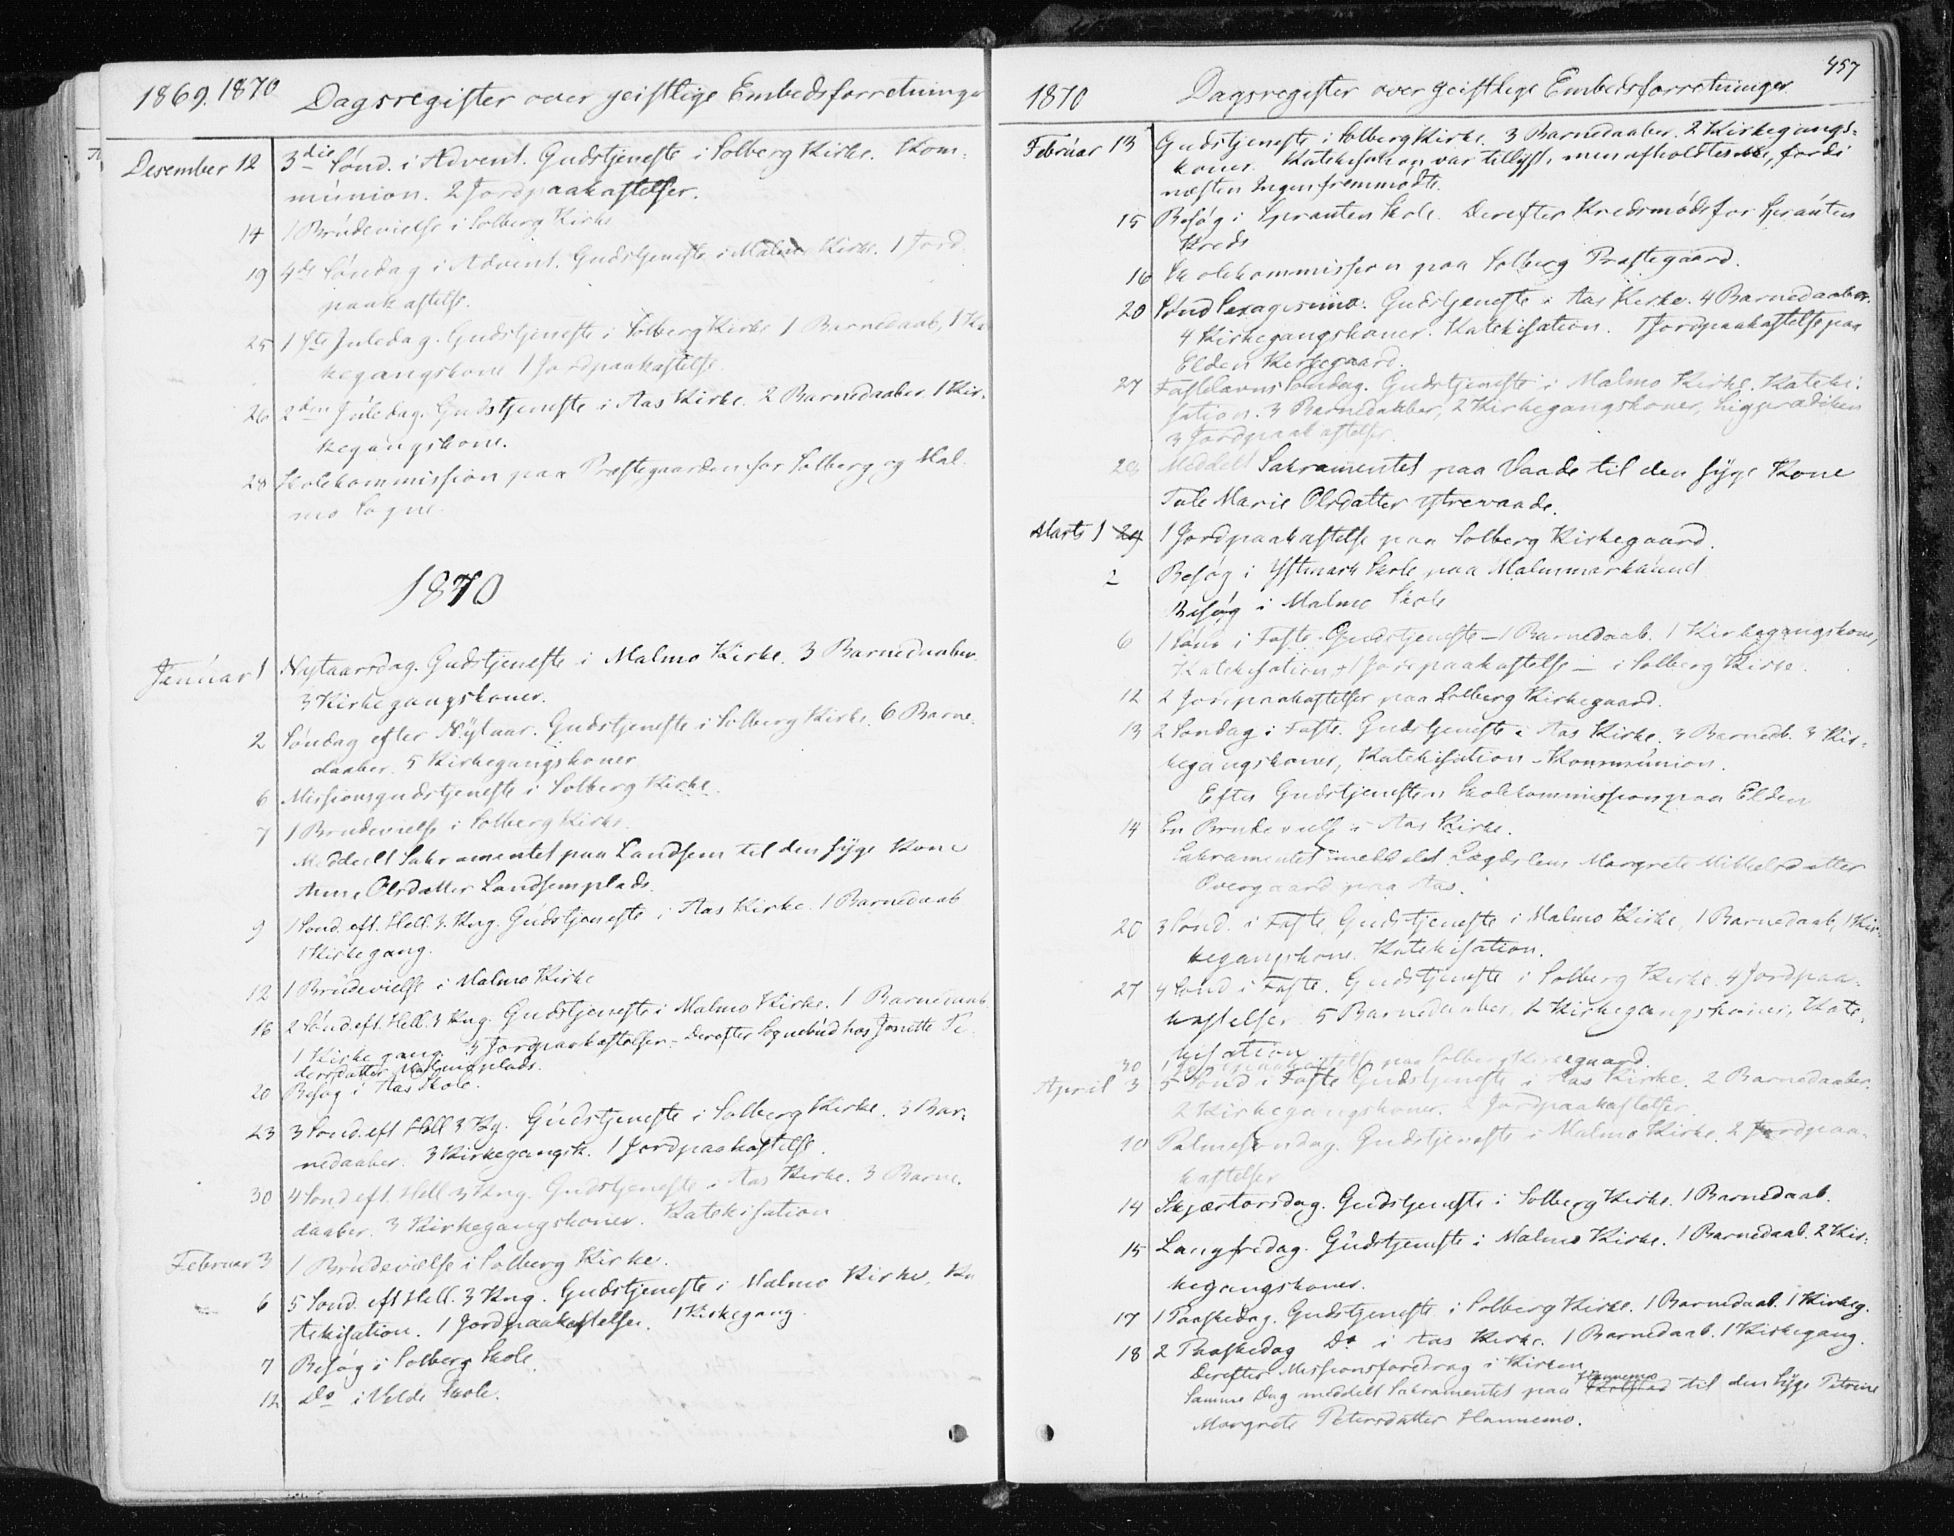 1869. 1870 Dagsregister over geistlige Embedsforretninge
Desember 12 3die Sønd. i Advent. Gudstjeneste i Solberg Kirke. Kom-
munion. 2 Jordpaakastelser.
14 1 Brudevielse i Solberg Kirke
19 4de Søndag i Advent. Gudstjeneste i Malmo Kirke. 1 Jord
paakastelse.
25 1ste Juledag. Gudstjeneste i Solberg Kirke 1 Barnedaab, 1 Kir
kegangskone 1 Jordpaakastelse.
26 2den Juledag. Gudstjeneste i Aas Kirke. 2 Barnedaaber. 1 Kir-
kegangskone.
28 Skolekommission paa Præstegaarden for Solberg og Mal-
mo Sogne.
1870
Januar 1 Nytaarsdag. Gudstjeneste i Malmo Kirke. 3 Barnedaaber.
3 Kirkegangskoner.
2 Søndag efter Nytaar. Gudstjeneste i Solberg Kirke. 6 Barne-
daaber. 5 Kirkegangskoner
6 Missionsgudstjeneste i Solberg Kirke.
7 1 Brudevielse i Solberg Kirke.
Meddeelt Sakramentet paa Landsem til den syge Kone
Anne Olsdatter Landsemplads.
9 1 Sønd. eft. Hell. 3. Kng. Gudstjeneste i Aas Kirke. 1 Barnedaab
1 Kirkegang.
12 1 Brudevielse i Malmo Kirke
16 2 Sønd. eft. Hell. 3 Kng. Gudstjeneste i Malmo Kirke. 1 Barnedaab.
1 Kirkegang. 3 Jordpaakastelser. Derefter Sognebud hos Jonette Pe-
dersdatter Malmoplads.
20 Besøg i Aas Skole.
23 3 Sønd. eft Hell 3 Kg. Gudstjeneste i Solberg Kirke. 3 Bar-
nedaaber. 3 Kirkegangsk. 1 Jordpaakastelse.
30 4 Sønd eft. Hell 3 Kng. Gudstjeneste i Aas Kirke. 3 Barne-
daaber. 3 Kirkegangskoner. Katekisation
Februar 3 1 Brudevielse i Solberg Kirke.
6 5 Sønd. eft Hell. 3 Kng. Gudstjeneste i Malmo Kirke. Ka
tekisation. 1 Jordpaakastelse. 1 Kirkegang.
7 Besøg i Solberg Skole.
12 Do i Velde Skole.
457
1870 Dagsregister over geistlige Embedsforretninger
Februar 13 Gudstjeneste i Solberg Kirke. 3 Barnedaaber. 2 Kirkegangs-
koner. Katekisation var tillyst, men afholdtes ikke, fordi
næsten Ingen fremmødte.
15 Besøg i Skole. Derefter Kredsmøde for
Kreds
16 Skolekommission paa Solberg Præstegaard.
20 Sønd Sexagesima. Gudstjeneste i Aas Kirke. 4 Barnedaaber.
4 Kirkegangskoner. Katekisation. 1 Jordpaakastelse paa
Elden Kirkegaard.
27 Fastelavns Søndag. Gudstjeneste i Malmo Kirke. Kateki-
sation. 3 Barnedaaber, 2 Kirkegangskoner, Ligprædiken
3 Jordpaakastelser.
28 Meddelt Sakramentet paa Vaade til den syge Kone
Marie Olsdatter Ystrevaade.
Marts 1 1 Jordpaakastelse paa Solberg Kirkegaard.
2 Besøg i Skole paa
Besøg i Malmo Skole
6 1 Sønd i Faste. Gudstjeneste – 1 Barnedaab. 1 Kirkegangskone,
Katekisation + 1 Jordpaakastelse – i Solberg Kirke.
12 2 Jordpaakastelser paa Solberg Kirkegaard.
13 2 Søndag i Faste. Gudstjeneste i Aas Kirke. 3 Barned. 3 Kir-
kegangskoner, Katekisation – Kommunion.
Efter Gudstjenesten Skolekommission paa Elden
14 En Brudevielse i Aas Kirke.
Sakramentet meddelet Lægdslem Margrete Mikkelsdatter
Overgaard paa Aas.
20 3 Sønd. i Faste, Gudstjeneste i Malmo Kirke, 1 Barnedaab, 1 Kir-
kegangskone. Katekisation.
27 4 Sønd i Faste. Gudstjeneste i Solberg Kirke. 4 Jordpaa-
kastelser. 5 Barnedaaber, 2 Kirkegangskoner, Kate-
kisation
30 1 Jordpaakastelse paa Solberg Kirkegaard.
April 3 5 Sønd i Faste Gudstjeneste i Aas Kirke. 2 Barnedaaber.
2 Kirkegangskoner. Jordpaakastelser.
10 Palmesøndag. Gudstjeneste i Malmo Kirke. 2 Jordpaa-
kastelser
14 Skjærtorsdag. Gudstjeneste i Solberg Kirke. 1 Barnedaab.
15 Langfredag. Gudstjeneste i Malmo Kirke. 1 Barnedaab. 2 Kir-
kegangskoner.
17 1 Paaskedag. Gudstjeneste i Solberg Kirke. 1 Barnedaab. 1 Kirkeg.
18 2 Paaskedag Do i Aas Kirke. 1 Barnedaab. 1 Kirkegang.
Derefter Missionsforedrag i Kirken
Samme Dag meddelt Sakramentet paa Hannemo til den syge Petrine
Margrete Petersdatter Hannemo.